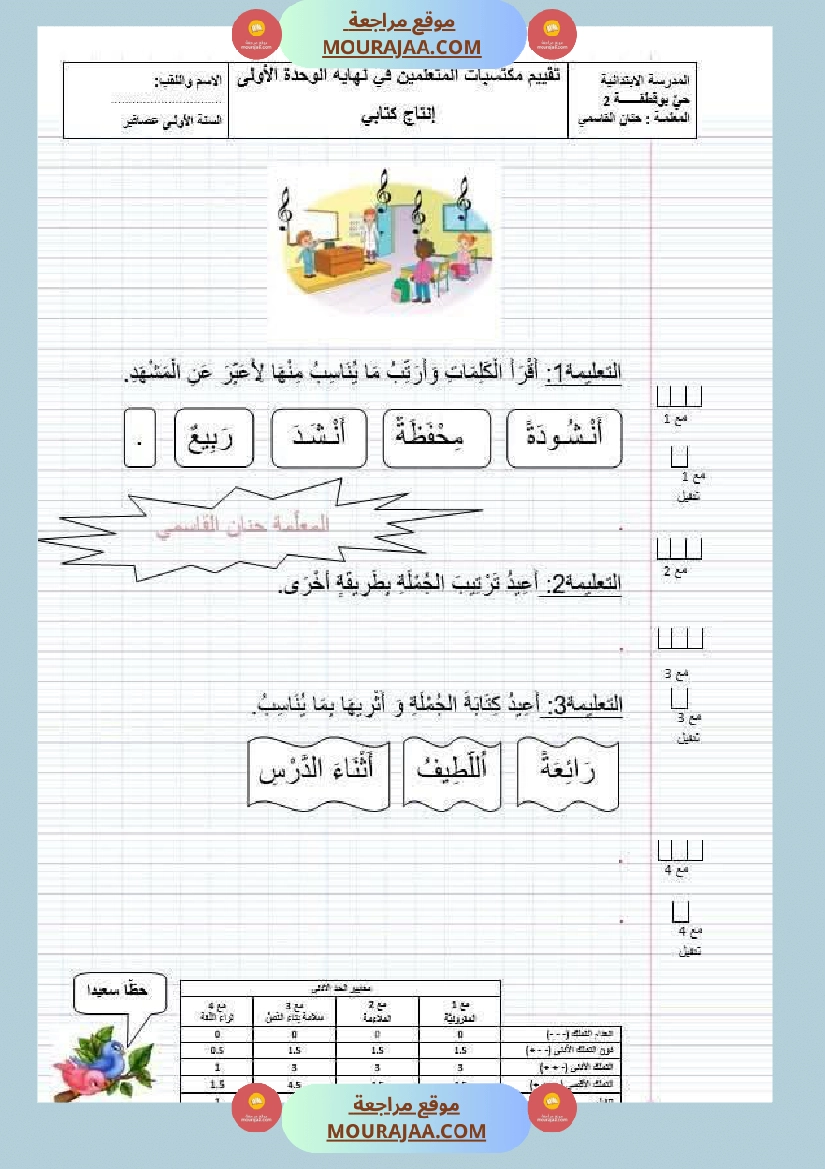 موقع مراجعة
MOURAJAA.COM
المدرسة الابتدائية
حيّ بوقطفـــــة 2
المعلمة : حنان القاسمي
تقييم مكتسبات المتعلمين في نهاية الوحدة الأولى
إنتاج كتابي
الاسم واللقب:
السنة الأولى عصافير
التعليمة1: أَقْرَأُ الْكَلِمَاتِ وَأُرَتِّبُ مَا يُنَاسِبُ مِنْهَا لِأُعَبِّرَ عَنِ الْمَشْهَدِ.
أُنْشُودَةً
مِحْفَظَةٌ
أَنْشَدَ
رَبِيعٌ
.
مع 1
مع 1
تنفيل
المعلّمة حنان القاسمي
مع 2
التعليمة2: أُعِيدُ تَرْتِيبَ الجُمْلَةِ بِطَرِيقَةٍ أُخْرَى.
مع 3
التعليمة3: أُعِيدُ كِتَابَةَ الجُمْلَةِ وَ أُثْرِيهَا بِمَا يُنَاسِبُ.
مع 3
تنفيل
رَائِعَةً
اُللَّطِيفُ
أَثْنَاءَ الدَّرْسِ
مع 4
مع 4
تنفيل
حظّا سعيدا
معايير الحد الأدنى
مع 1 المقروئيّة
مع 2 الملاءمة
مع 3 سلامة بناء النصّ
مع 4 ثراء اللّغة
انعدام التملك (- - -) 0 0 0 0
دون التملك الأدنى (+ - -) 1.5 1.5 1.5 0.5
التملك الأدنى (+ + -) 3 3 3 1
التملك الأقصى 4.5 1.5
موقع مراجعة
MOURAJAA.COM